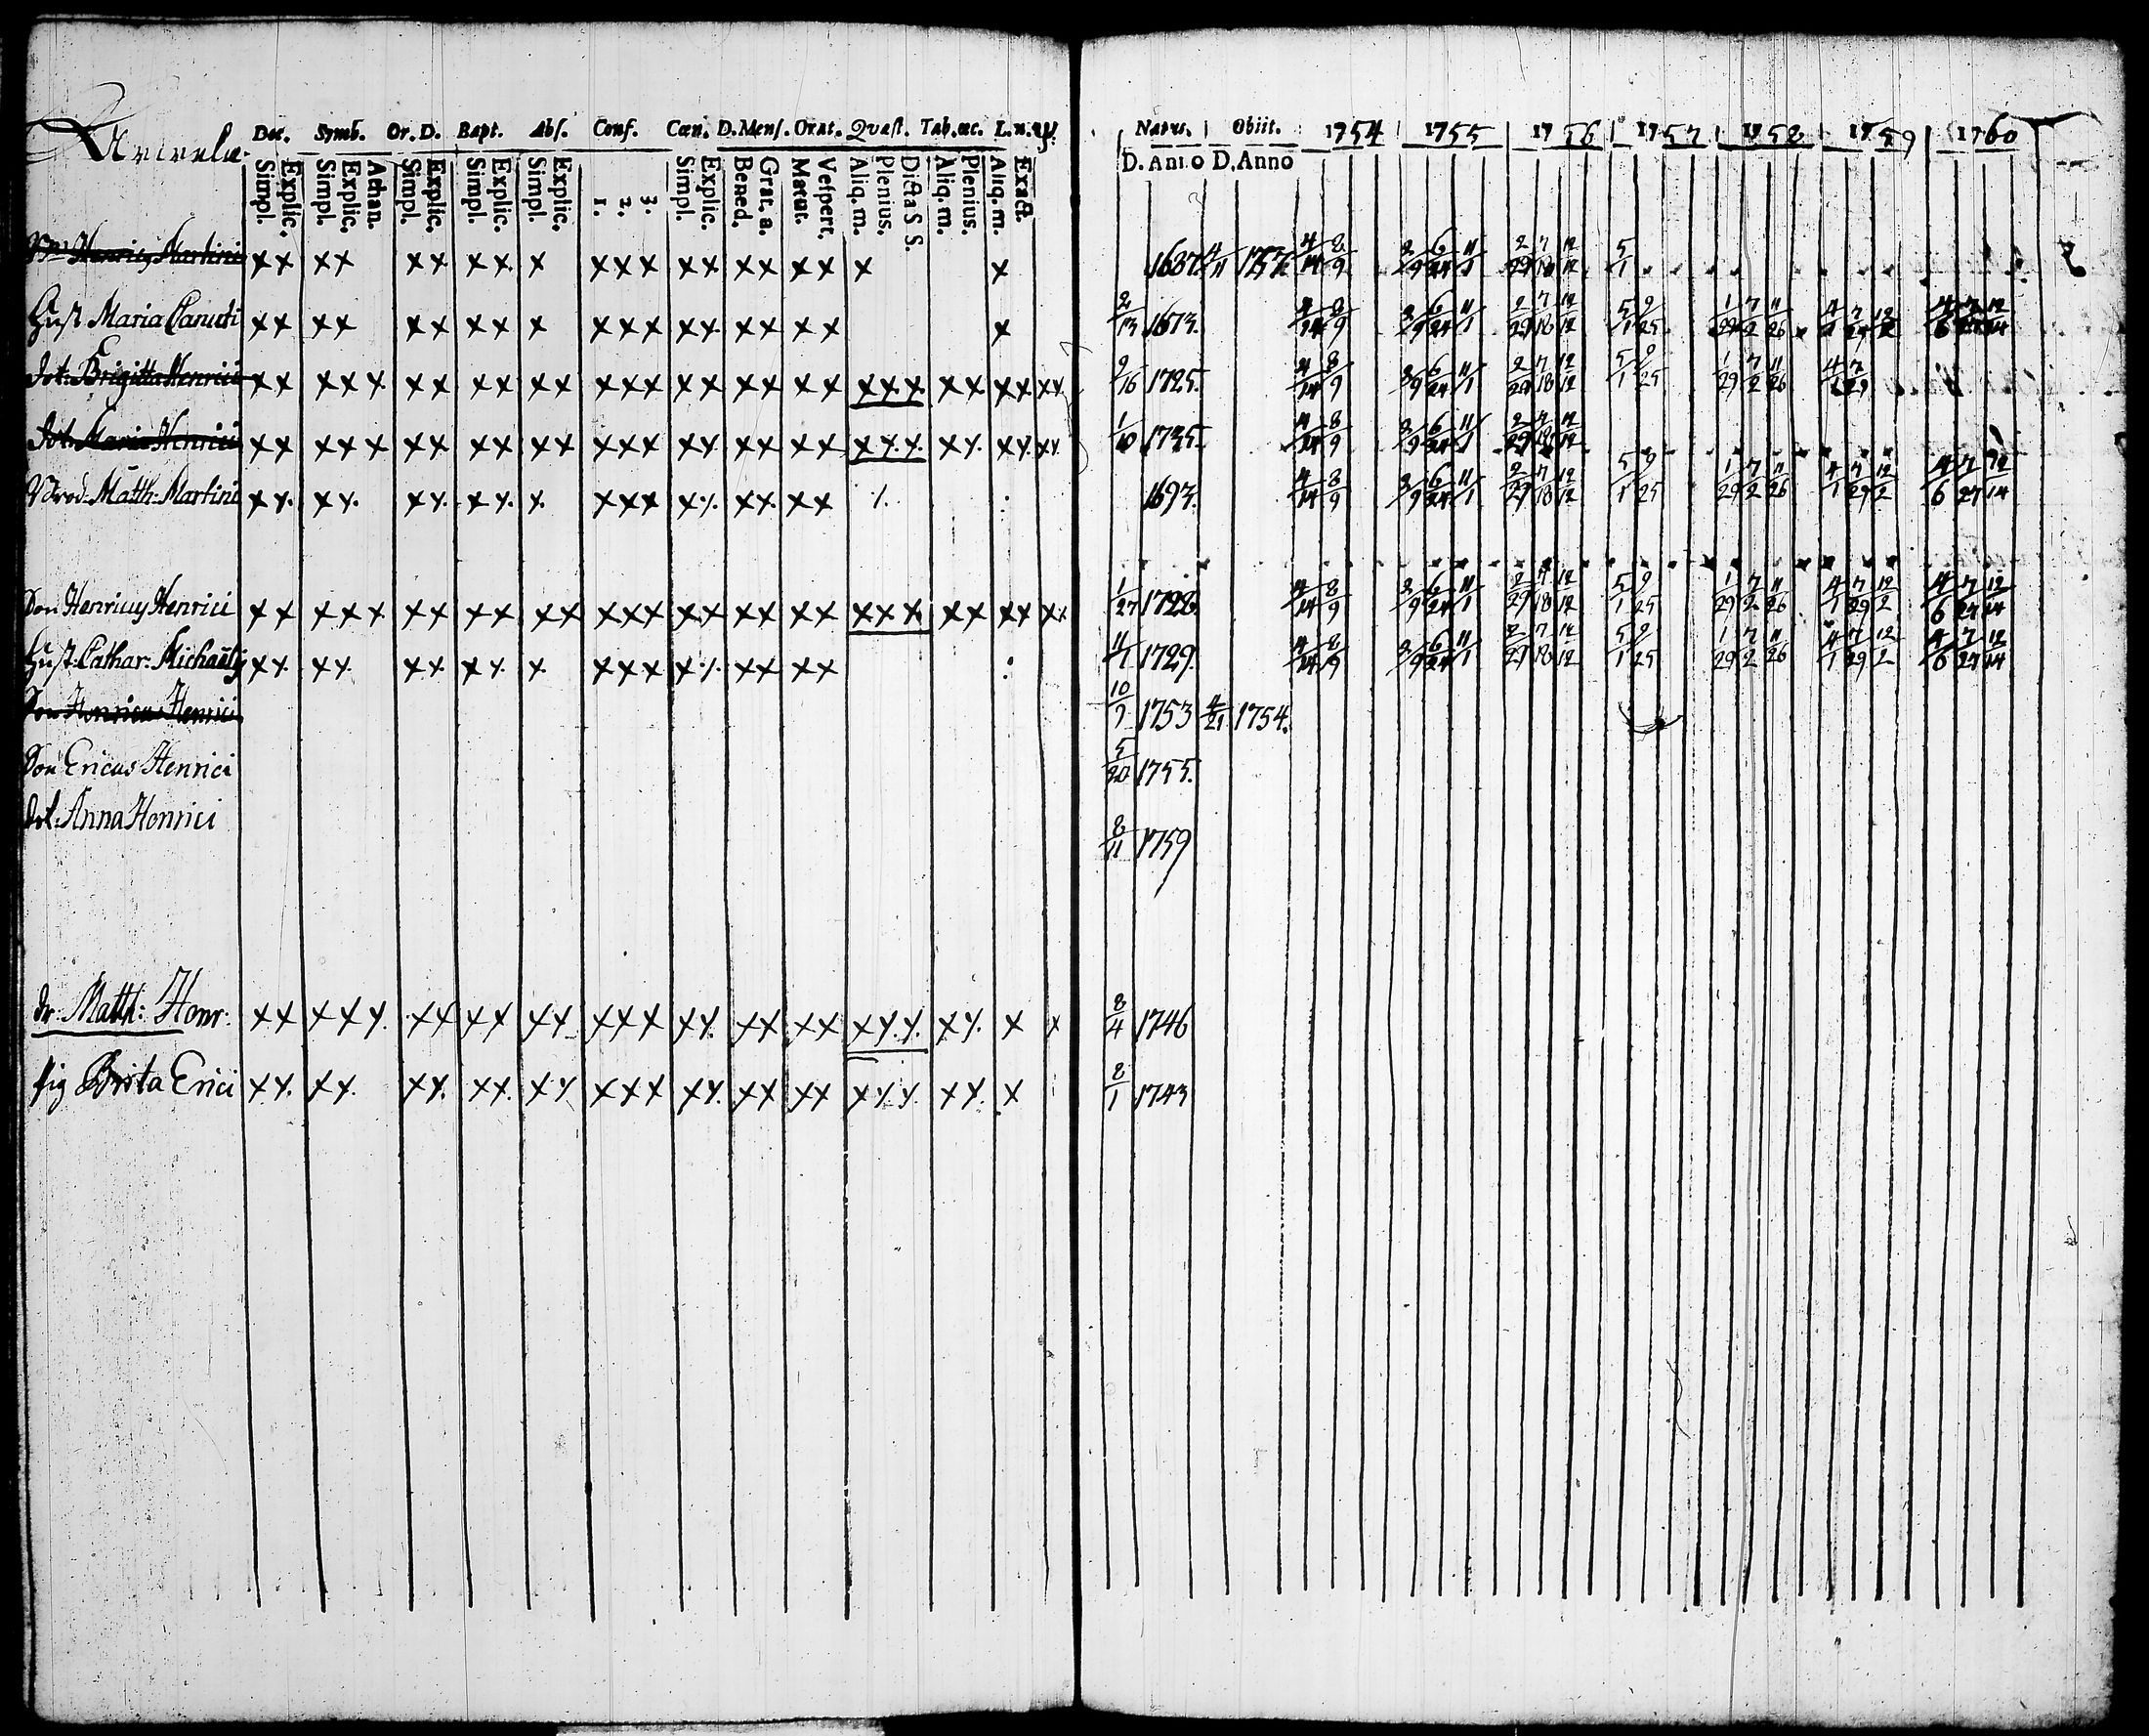 Dec. Symb. Or. D. Bapt. Abs. Conf. Cœn. D. Mens. Orat. Qvæst. Tab. œc. L. n.
Simpl. Explic. Simpl. Explic. Athan. Simpl. Explic. Simpl. Explic. Simpl. Explic. 1. 2. 3. Simpl. Explic. Bened. Grat. a. Matut. Vespert. Aliq. m. Plenius. Dicta S S. Aliq. m. Plenius. Aliq. m. Exact.
Natus. Obiit. 1754 1755 1756 1757 1758 1759 1760
D. Anno D. Anno
Henricus Martini x x x x x x x x x x x x x x x x x x x x 1687 4/11 1757 4/14 8/9 3/9 6/24 11/1 2/29 7/18 12/12 5/1
Hust. Maria Canuti x x x x x x x x x x x x x x x x x x x 2/13 1673. 4/14 8/9 3/9 6/24 11/1 2/29 7/18 12/12 5/1 9/25 1/29 7/2 11/26 4/1 7/29 12/2 4/6 7/27 12/14
Dot: Brigitta Henrici x x x x x x x x x x x x x x x x x x x x x x x x x x x x x 9/16 1725. 4/14 8/9 3/9 6/24 11/1 2/29 7/18 12/12 5/1 9/25 1/29 7/2 11/26 4/1 7/29
Dot: Maria Henrici x x x x x x x x x x x x x x x x x x x x x x x x x x x x x 1/10 1735. 4/14 8/9 3/9 6/24 11/1 2/29 7/18 12/12
Matth: Martini x x x x x x x x x x x x x x x x x 1693. 4/14 8/9 3/9 6/24 11/1 2/29 7/18 12/12 5/1 9/25 1/29 7/2 11/26 4/1 7/29 12/2 4/6 7/27 12/14
Son Henricus Henrici x x x x x x x x x x x x x x x x x x x x x x x x x x x x x 1/27 1728. 4/14 8/9 3/9 6/24 11/1 2/29 7/18 12/12 5/1 9/25 1/29 7/2 11/26 4/1 7/29 12/2 4/6 7/27 12/14
Hust: Cathar: Michaëlis x x x x x x x x x x x x x x x x x x 11/1 1729. 4/14 8/9 3/9 6/24 11/1 2/29 7/18 12/12 5/1 9/25 1/29 7/2 11/26 4/1 7/29 12/2 4/6 7/27 12/14
Son Henricus Henrici 10/9 1753 4/21 1754.
Son Ericus Henrici 5/20 1755.
Dot: Anna Henrici 8/11 1759
Dr: Matth: Henr: x x x x x x x x x x x x x x x x x x x x x x x x x x x 8/4 1746
pig Brita Erici x x x x x x x x x x x x x x x x x x x x x x x x x 8/1 1743